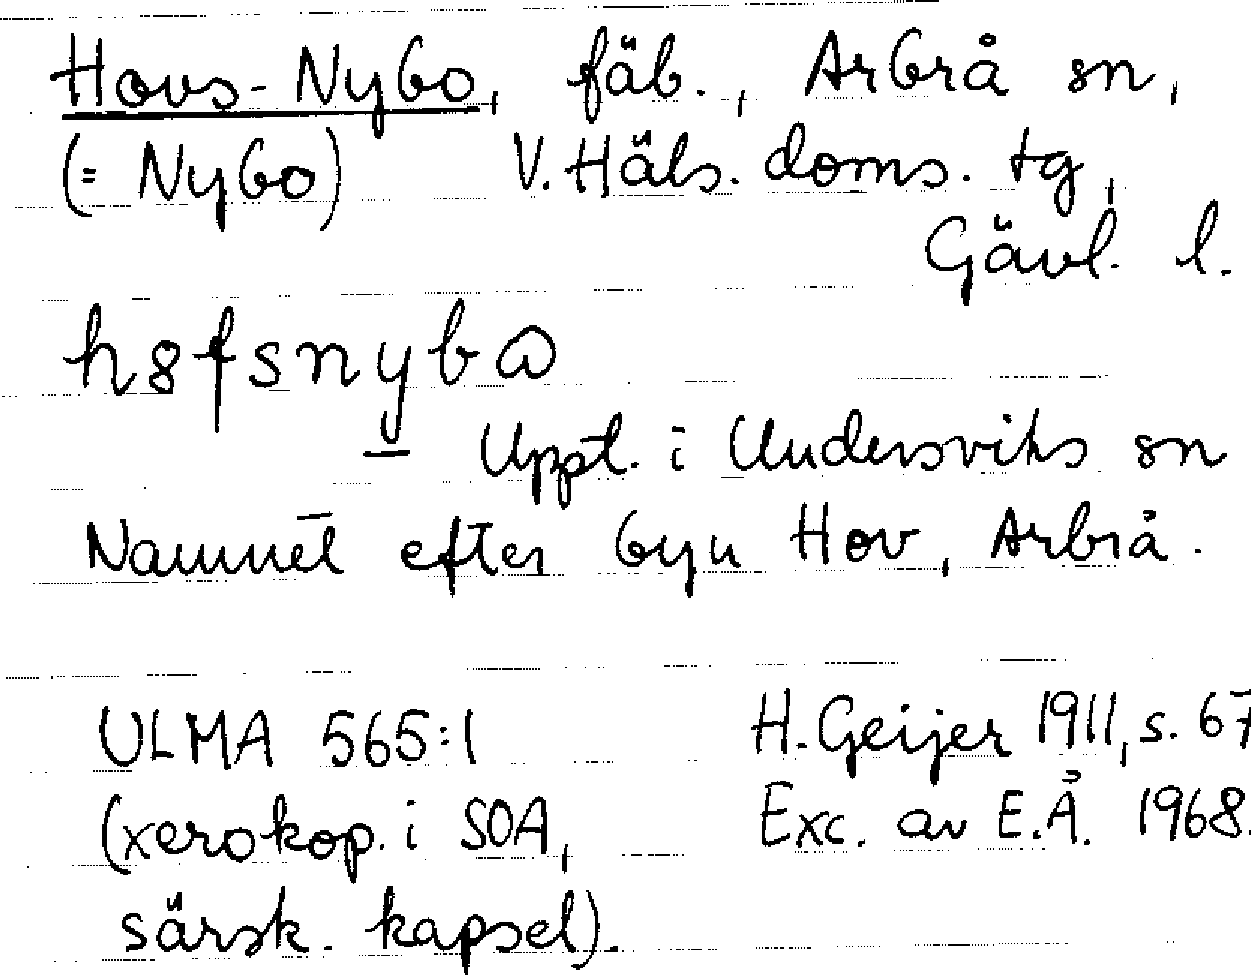 Hovs-Nybo, fäb., Arbrå sn,
(= Nybo) V. Häls. doms. tg,
Gävl. l.
h8fsnyba
Uppt. i Undersviks sn
Namnet efter byn Hov, Arbrå.
ULMA 565:1 H. Geijer 1911, s. 67
(xerokop. i SOA, Exc. av E.Å. 1968.
särsk. kapsel).